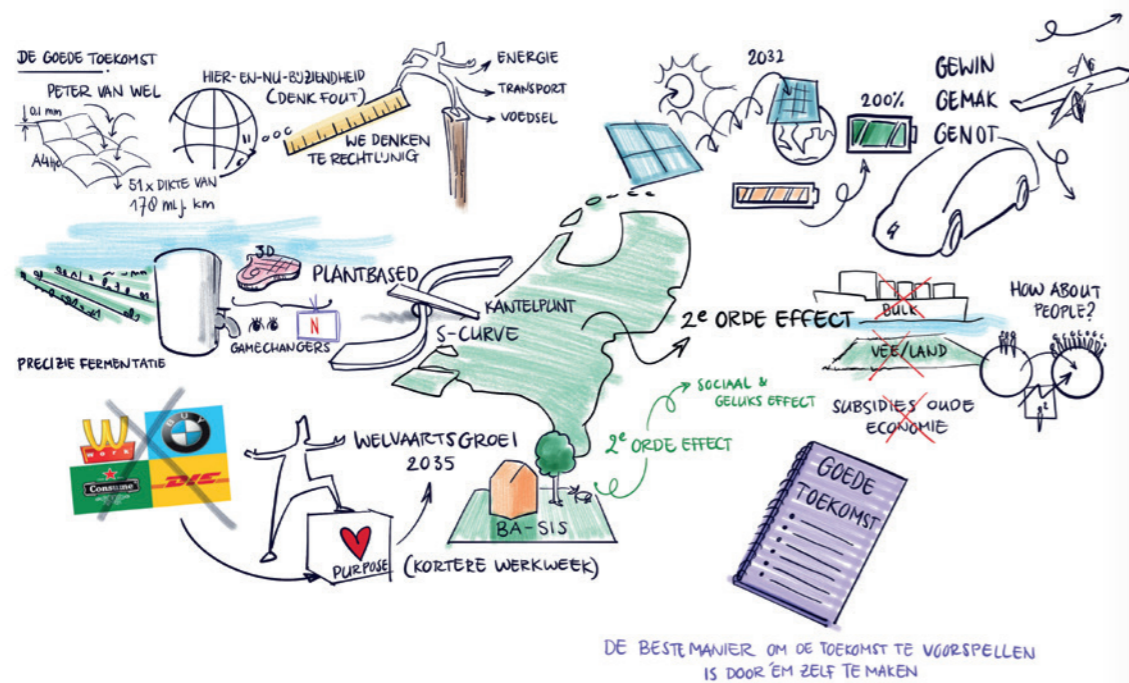 DE GOEDE TOEKOMST
PETER VAN WEL
0.1 mm
A4tje
51x DIKTE VAN
170 mlj. km
HIER-EN-NU-BIJZIENDHEID
(DENKFOUT)
WE DENKEN
TE RECHTLIJNIG
ENERGIE
TRANSPORT
VOEDSEL
2032
200%
GEWIN
GEMAK
GENOT
3D
PLANTBASED
N
GAMECHANGERS
PRECIZIE FERMENTATIE
KANTELPUNT
S-CURVE
2e ORDE EFFECT
BULK
VEE/LAND
SUBSIDIES OUDE
ECONOMIE
HOW ABOUT
PEOPLE?
SOCIAAL &
GELUKS EFFECT
2e ORDE EFFECT
WORK
BUY
Consume
DIE
WELVAARTSGROEI
2035
PURPOSE
BA-SIS
(KORTERE WERKWEEK)
GOEDE
TOEKOMST
DE BESTE MANIER OM DE TOEKOMST TE VOORSPELLEN
IS DOOR 'EM ZELF TE MAKEN